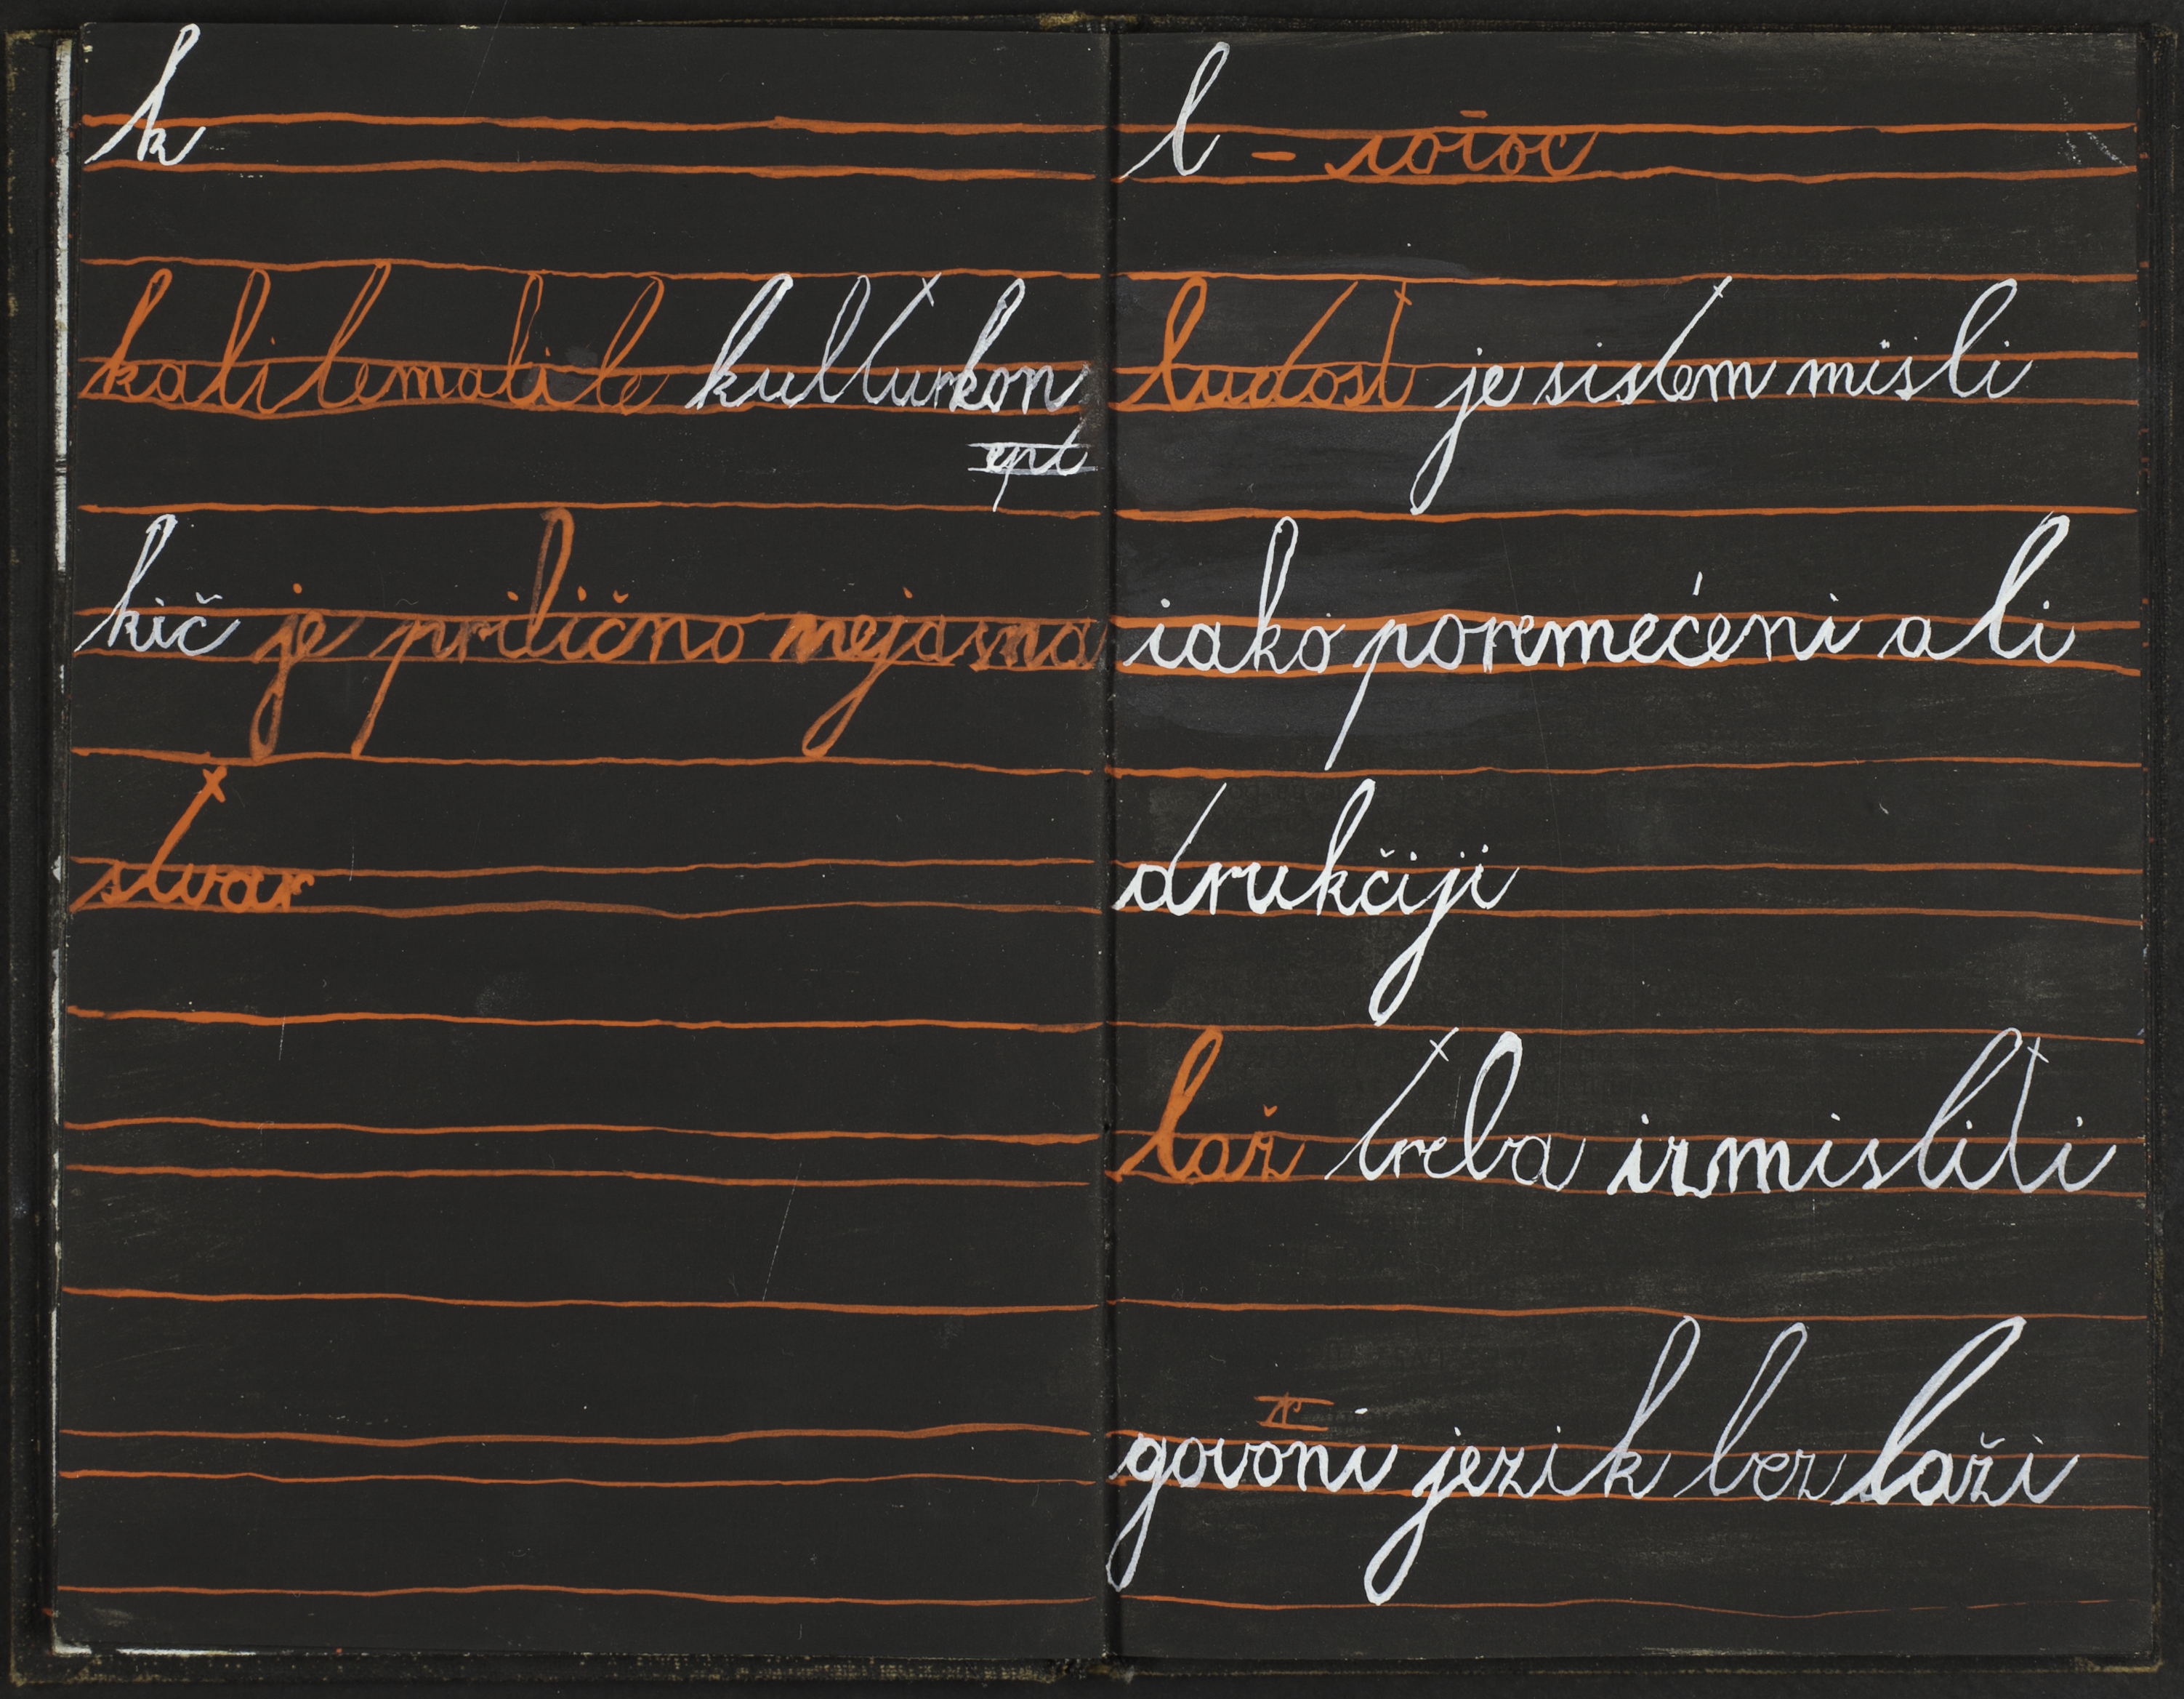 k
kulturkon
cept
kič je prilično nejasna
stvar
l -
ludost je sistem misli
iako poremećeni ali
drukčiji
laž treba izmisliti
r
govoni jezik bez laži